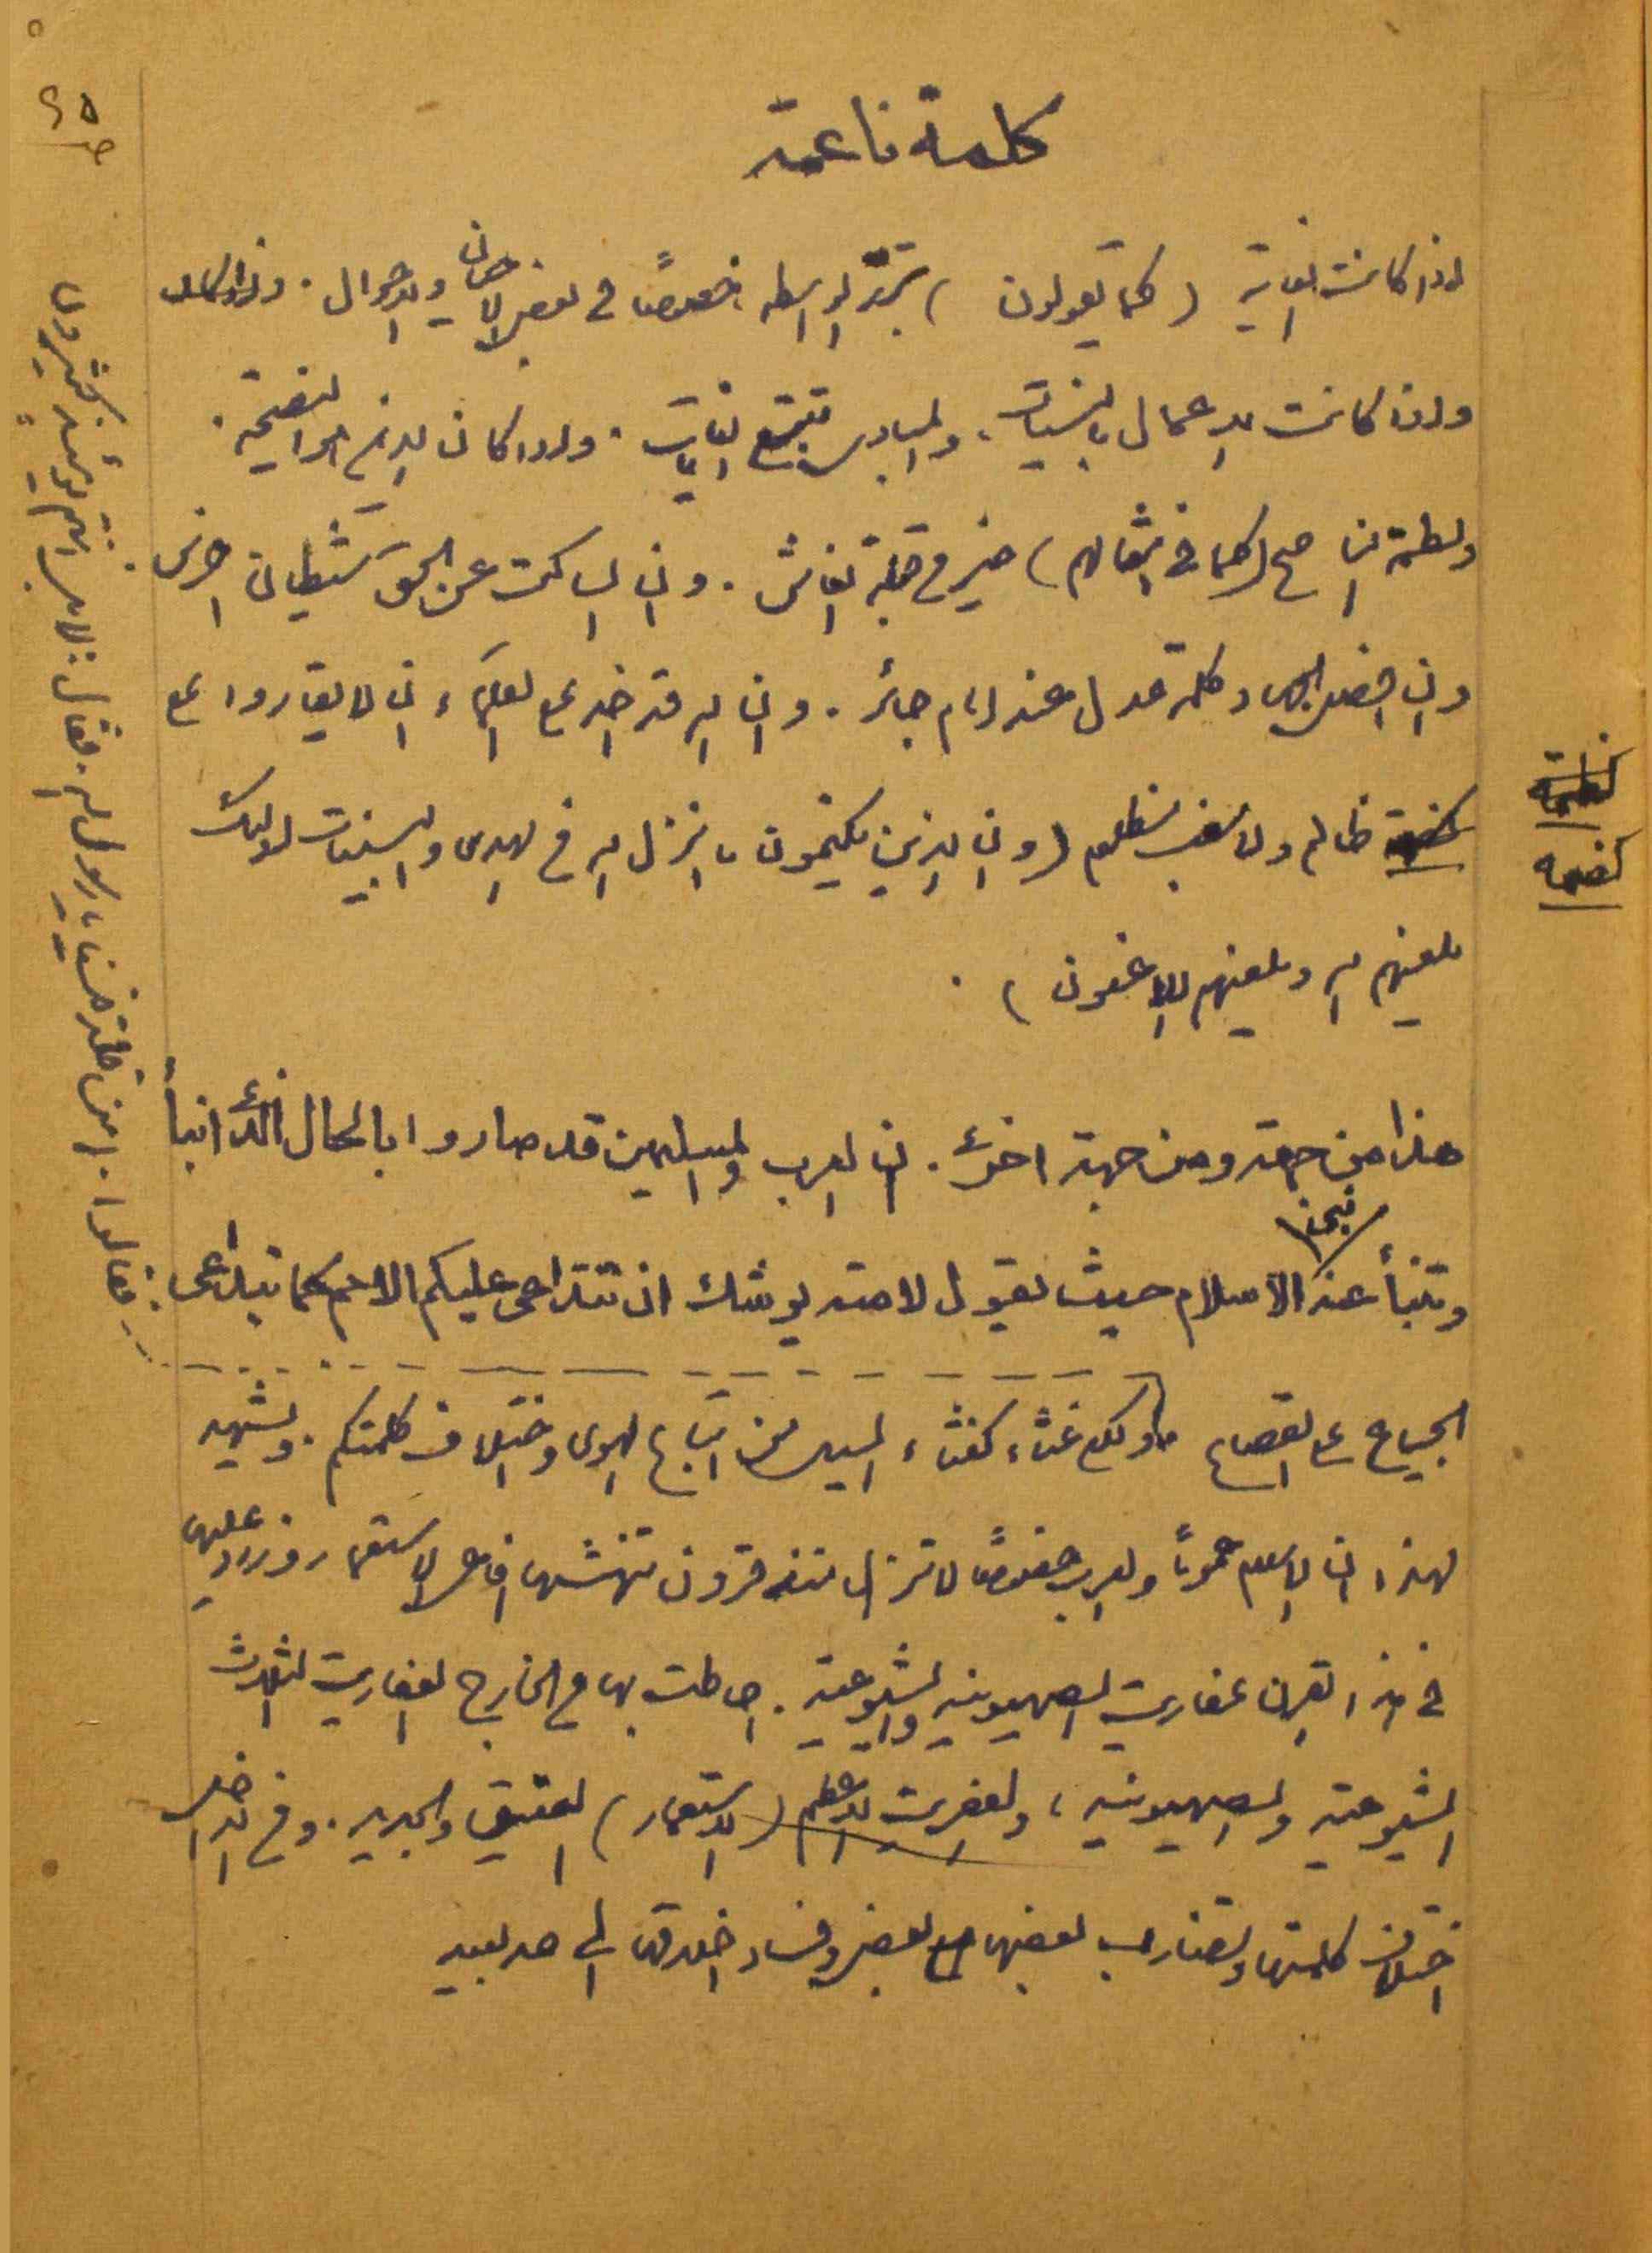 كلمة ناعمة
اذا كانت الغاية (كما تقولون) تبرر الواسطة خصوصاً في بعض الاحيان والاحوال. واذا كانت
واذا كانت الاعمال بالنيات، والمبادئ تتبع الغايات. واذا كان الدين هو النصيحة.
ولطمة الناصح (كما في امثالهم) خير من قبلة الغاش. وان الساكت عن الحق شيطان اخرس
وان افضل الجهاد كلمة عدل عند امام جائر. وان الله قد اخذ على العلماء ان لا يقاروا على
كظة ظالم ولا سغب مظلوم (وان الذين يكتمون ما انزل الله من الهدى والبينات اولئك
يلعنهم الله ويلعنهم اللاعنون).
هذا من جهة ومن جهة اخرى. ان العرب والمسلمين قد صاروا بالحال الذي انبأ
وتنبأ عنه نبي الاسلام حيث يقول لامته يوشك ان تتداعى عليكم الامم كما تتداعى
الجياع على القصاع ولكنكم غثاء كغثاء السيل من اتباع الهوى واختلاف كلمتكم. ويشهد
لهذا ان الاسلام عموماً والعرب خصوصاً لا تزال منذ قرون تنهشها افاعي الاستعمار وزاد عليها
في هذا القرن عفاريت الصهيونية والشيوعية. احاطت بها من الخارج العفاريت الثلاث
الشيوعية والصهيونية، والعفريت الاعظم (الاستعمار) العتيق والجديد. ومن الداخل
اختلاف كلمتها وتضارب بعضها مع بعض وفساد اخلاقها الى حد بعيد
فقالوا. امن قلة نحن يا رسول الله. فقال: لا بل انتم يومئذ كثيرون
كظة